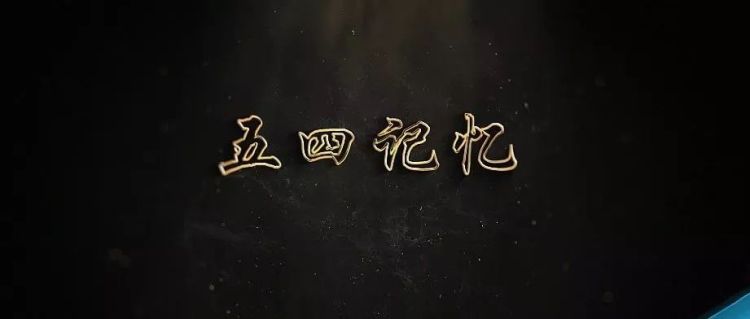 五四记忆